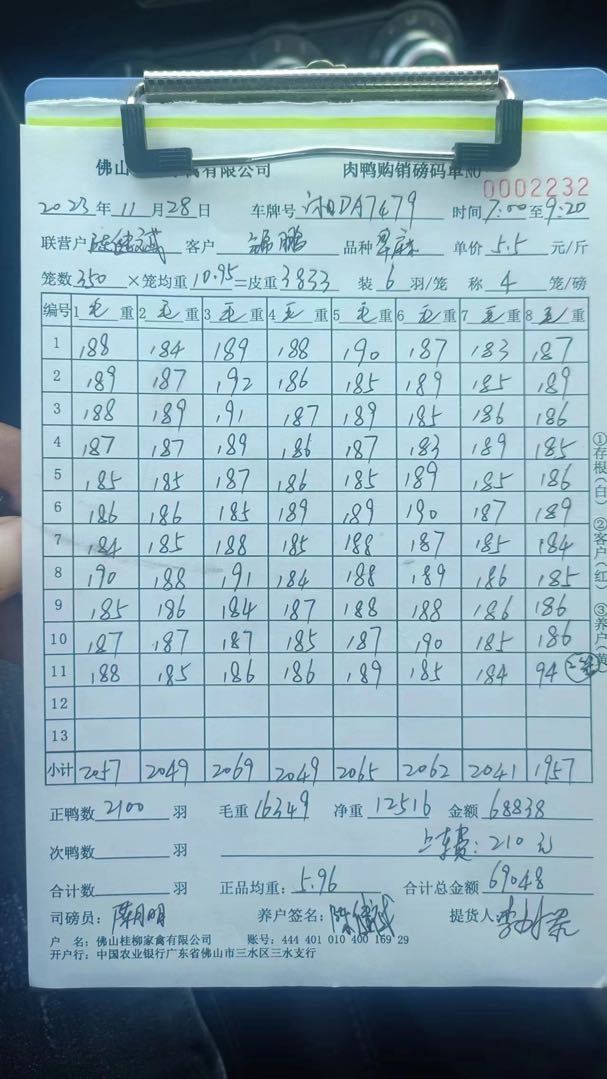 佛山 禽有限公司 肉鸭购销磅码单NO 0002232
2023年11月28日 车牌号 湘DA7479 时间7:00至9:20
联营户 客户 鹏 品种 单价5.5元/斤
笼数350×笼均重10.95=皮重3833 装6羽/笼 称4笼/磅
编号 1毛重 2毛重 3毛重 4毛重 5毛重 6毛重 7毛重 8毛重
1 188 184 189 188 190 187 183 187
2 189 187 192 186 185 189 185 189
3 188 189 191 187 189 185 186 186
4 187 187 189 186 187 183 189 185
5 185 185 187 186 185 189 185 186
6 186 186 185 189 189 190 187 189
7 184 185 188 185 188 187 185 184
8 190 188 191 184 188 189 186 185
9 185 186 184 187 188 188 186 186
10 187 187 187 185 187 190 185 186
11 188 185 186 186 189 185 184 94
12
13
小计 2057 2049 2069 2049 2065 2062 2041 1957
正鸭数2100羽 毛重16349 净重12516 金额68838
次鸭数 羽 上车费:210元
合计数 羽 正品均重:5.96 合计总金额69048
司磅员: 明 养户签名:陈 提货人:李
户 名:佛山桂柳家禽有限公司 账号:444 401 010 400 169 29
开户行:中国农业银行广东省佛山市三水区三水支行
①存根(白) ②客户(红) ③养户(黄)